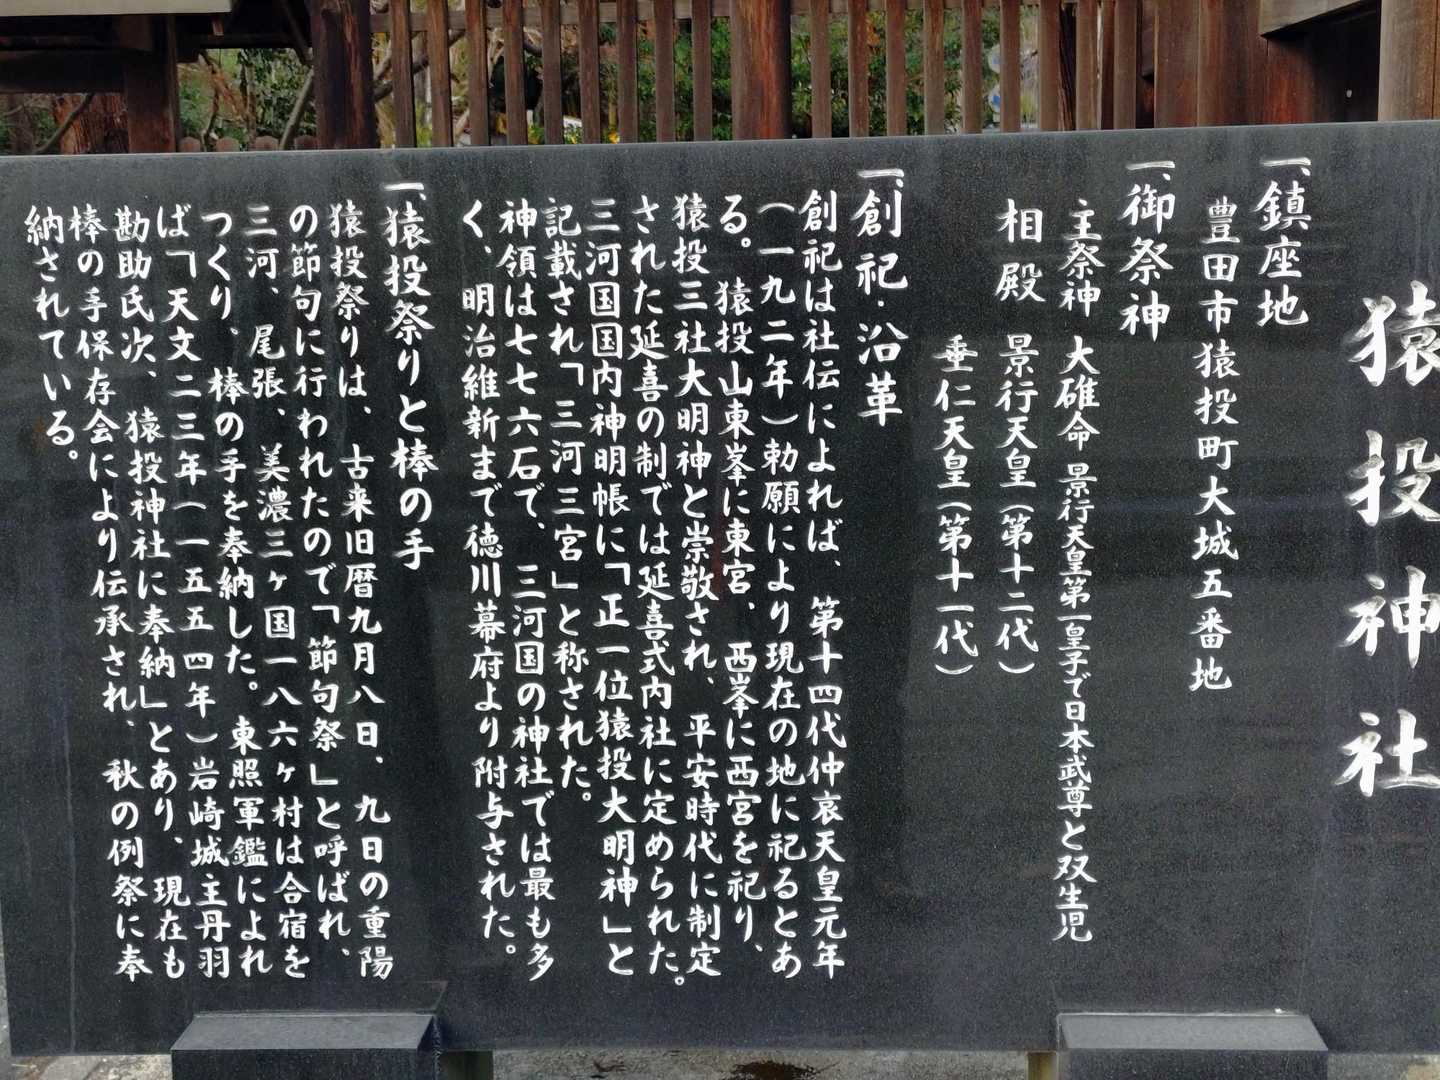 猿投神社
一、鎮座地
豊田市猿投町大城五番地
一、御祭神
主祭神 大碓命 景行天皇第一皇子で日本武尊と双生児
相殿 景行天皇（第十二代）
垂仁天皇（第十一代）
一、創祀・沿革
創祀は社伝によれば、第十四代仲哀天皇元年
（一九二年）勅願により現在の地に祀るとあ
る。猿投山東峯に東宮、西峯に西宮を祀り、
猿投三社大明神と崇敬され、平安時代に制定
された延喜の制では延喜式内社に定められた。
三河国国内神明帳に「正一位猿投大明神」と
記載され「三河三宮」と称された。
神領は七七六石で、三河国の神社では最も多
く、明治維新まで徳川幕府より附与された。
一、猿投祭りと棒の手
猿投祭りは、古来旧暦九月八日、九日の重陽
の節句に行われたので「節句祭」と呼ばれ、
三河、尾張、美濃三ヶ国一八六ヶ村は合宿を
つくり、棒の手を奉納した。東照軍鑑によれ
ば「天文二三年（一五五四年）岩崎城主丹羽
勘助氏次、猿投神社に奉納」とあり、現在も
棒の手保存会により伝承され、秋の例祭に奉
納されている。